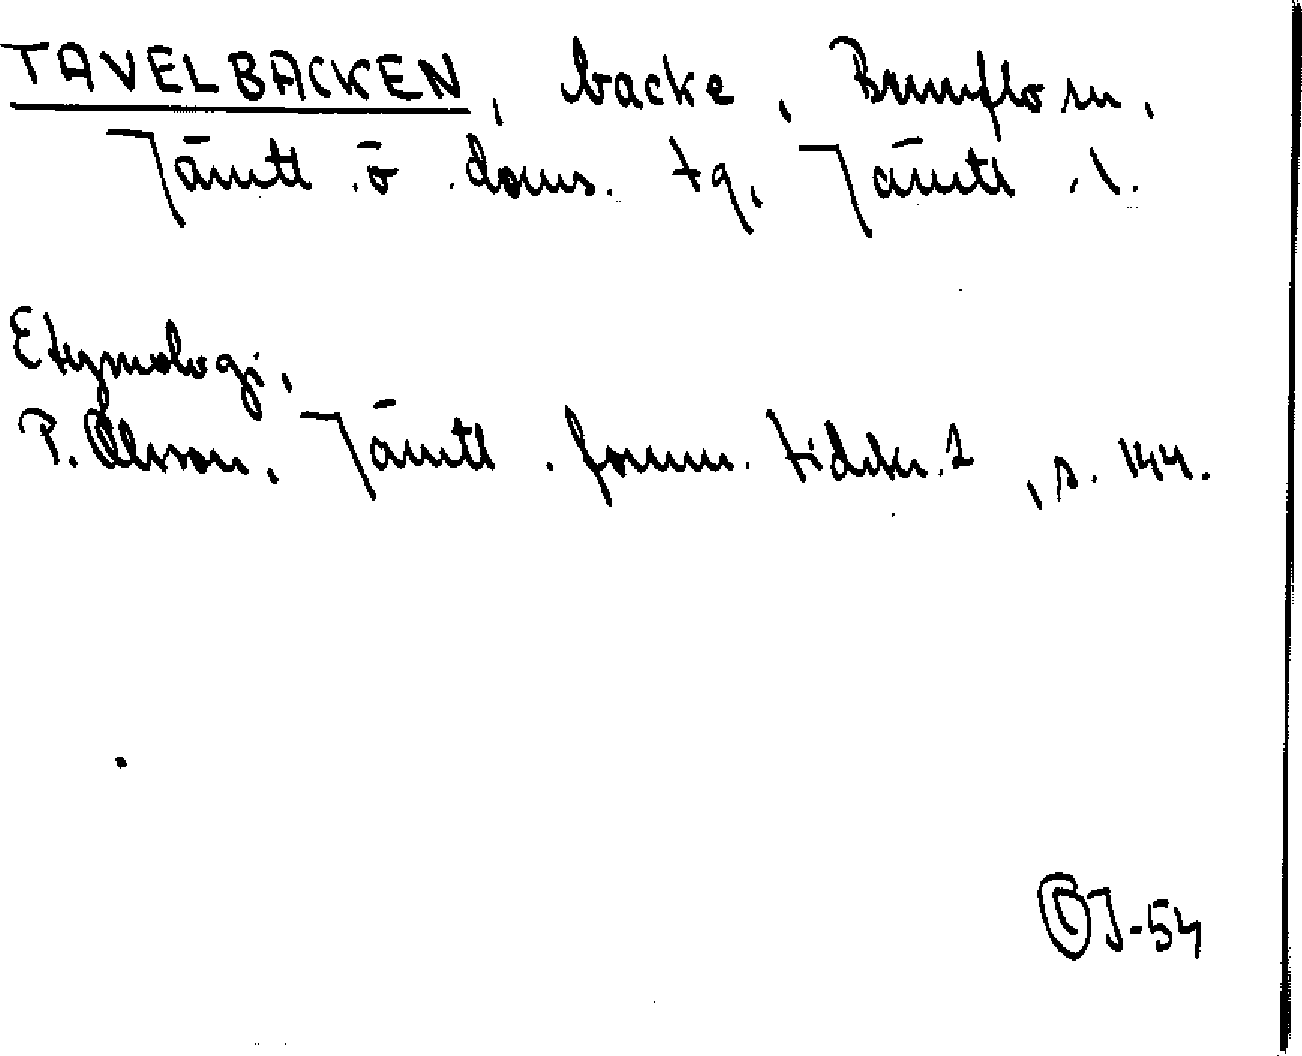 TAVELBACKEN, backe, Brunflo sn,
Jämtl. ö. doms. tg, Jämtl. l.
Etymologi,
P. Olsson, Jämtl. fornm. tidskr. 1, s. 144.
OJ-54